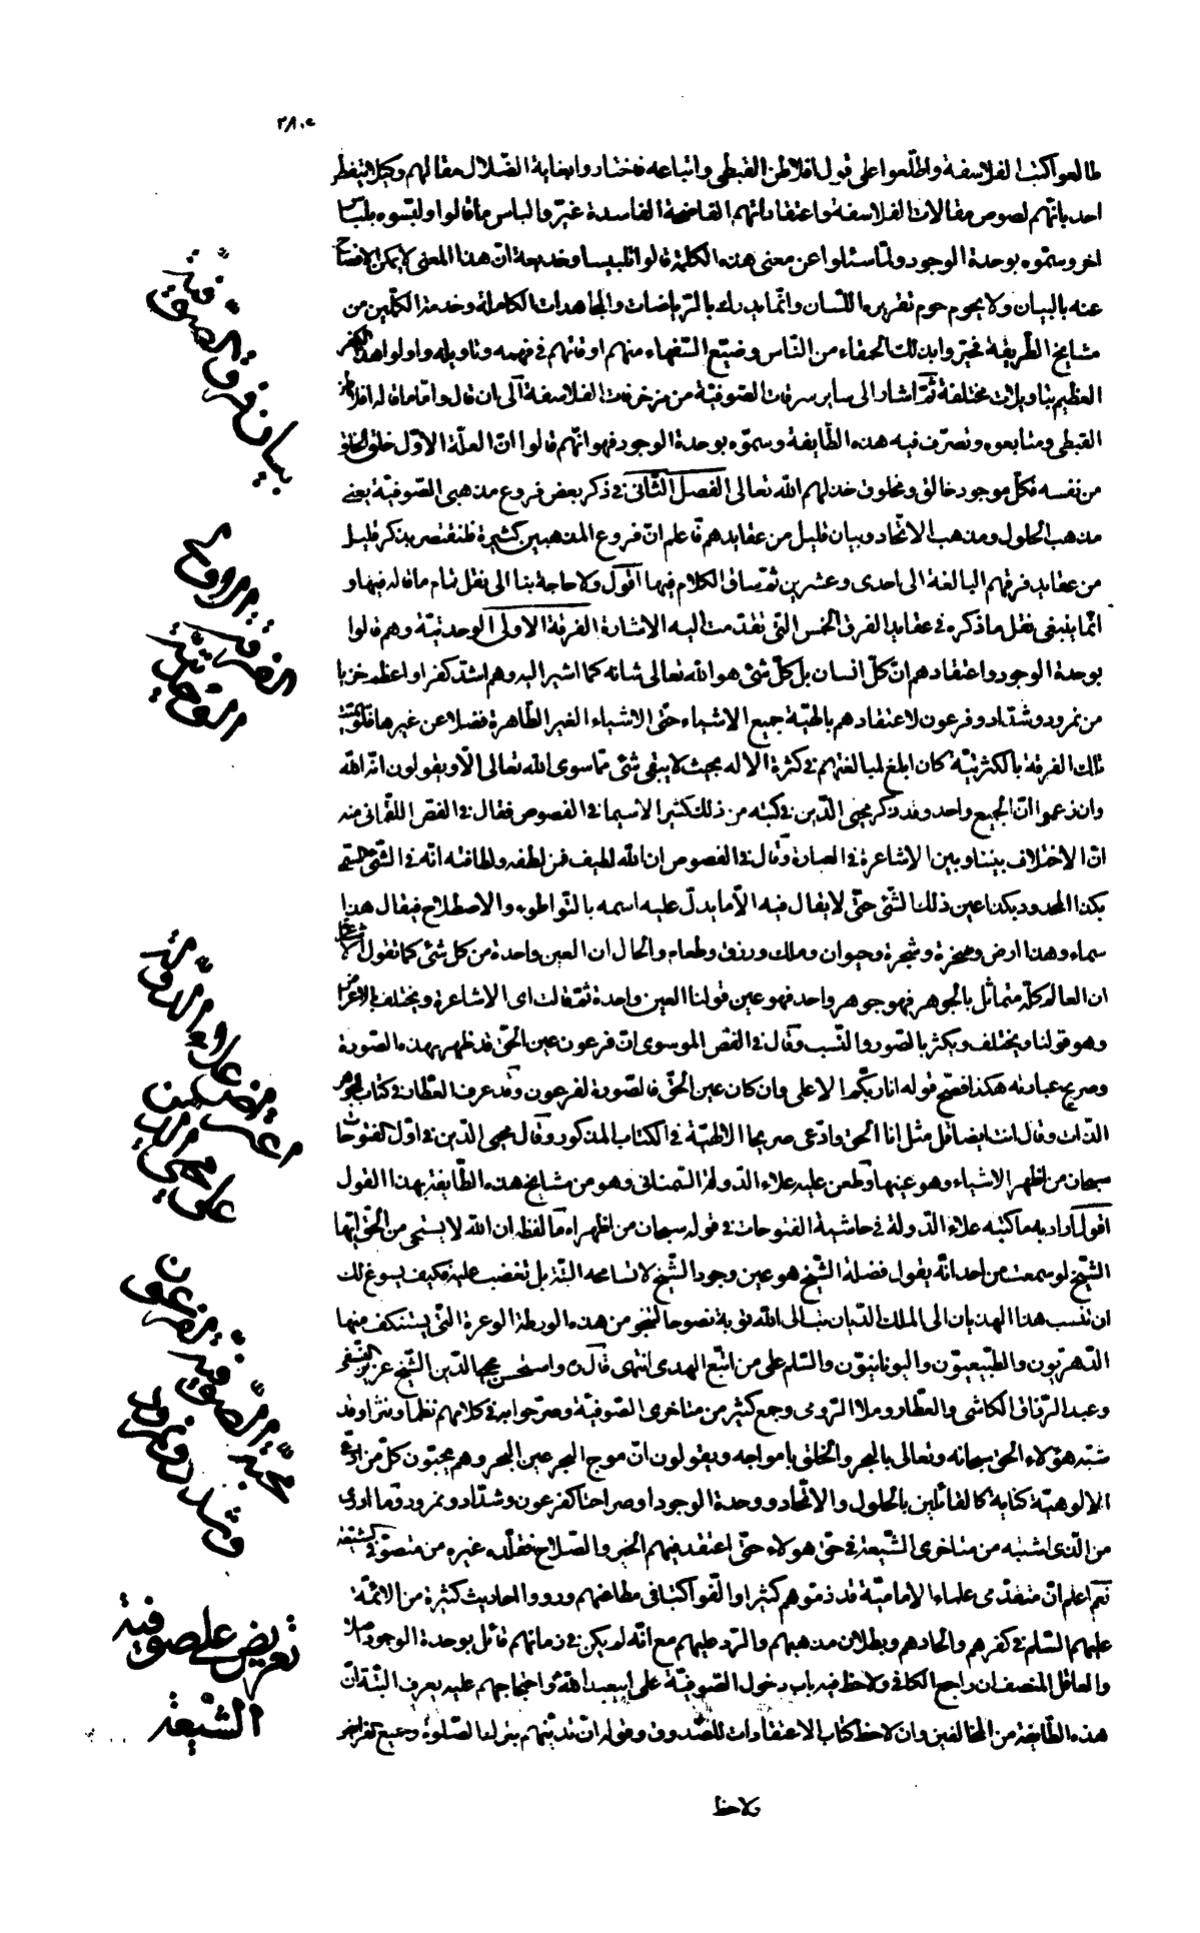 ٢٨٠
طالعوا كتب الفلاسفة واطلّعوا على قول افلاطن القبطي واتباعه فاختاروا بغاية الضلال مقالهم وكيلا يتفطر
احد بانّهم لصوص مقالات الفلاسفة واعتقاداتهم القاضحة الفاسدة غيّروا لباس ما قالوا ولبّسوه بلباس
اخر وسمّوه بوحدة الوجود ولمّا سئلوا عن معنى هذه الكلمة قالوا تلبيسا وخديعة انّ هذا المعنى لا يمكن الافصاح
عنه بالبيان ولا يحوم حوم تقريره اللسان وانّما يدرك بالرّياضات والمجاهدات الكاملة وخدمة الكمّلين من
مشايخ الطّريقة فحيّروا بذلك الحمقاء من النّاس وضيّع السّفهاء منهم اوقاتهم في فهمه وتاويله واولوا هذا الكفر
العظيم بتاويلات مختلفة ثمّ اشار الى ساير سرقات الصّوفيّة من مزخرفات الفلاسفة الى ان قال وامّا ما قاله افلاطن
القبطي ومتابعوه وتصرّف فيه هذه الطّايفة وسمّوه بوحدة الوجود فهو انّهم قالوا انّ العلّة الاوّل خلق الخلق
من نفسه فكلّ موجود خالق ومخلوق خذلهم الله تعالى الفصل الثّاني في ذكر بعض فروع مذهبي الصّوفيّة يعني
مذهب الحلول ومذهب الاتّحاد وبيان قليل من عقايدهم فاعلم انّ فروع المذهبين كثيرة فلنقتصر بذكر قليل
من عقايد فرقهم البالغة الى احدى وعشرين ثمّ ساق الكلام فيها اقول ولا حاجة بنا الى نقل تمام ما قاله فيها و
انّما ينبغي نقل ما ذكره في عقايد الفرق الخمس التي تقدّمت اليه الاشارة الفرقة الاولى الوحدتيّة وهم قالوا
بوحدة الوجود واعتقادهم انّ كلّ انسان بل كلّ شئ هو الله تعالى شانه كما اشير اليه وهم اشدّ كفرا واعظم خزيا
من نمرود وشدّاد وفرعون لاعتقادهم بالهيّة جميع الاشياء حتّى الاشياء الغير الطّاهرة فضلا عن غيرها فلو
تلك الفرقة بالكثرتيّة كان ابلغ لمبالغتهم في كثرة الاله بحيث لا يبقى شئ ممّا سوى الله تعالى الّا ويقولون انّه الله
وان زعموا انّ الجميع واحد وقد ذكر محيى الدّين في كتبه من ذلك كثيرا لا سيما في الفصوص فقال في الفصّ اللقماني منه
انّ الاختلاف بيننا وبين الاشاعرة في العبارة وقال في الفصوص ان الله لطيف فمن لطفه ولطافته انّه في الشّئ المسمّى
بكذا المحدود بكذا عين ذلك الشّئ حتّى لا يقال فيه الّا ما يدلّ عليه اسمه بالتّواطؤ والاصطلاح فيقال هذا
سماء وهذا ارض وصخرة وشجرة وحيوان وملك ورزق وطعام والحال ان العين واحدة من كل شئ كما تقول الاشاعرة
ان العالم كلّه متماثل بالجوهر فهو جوهر واحد فهو عين قولنا العين واحدة ثمّ قالت اى الاشاعرة ويختلف بالاعراض
وهو قولنا ويختلف ويكثر بالصّور والنّسب وقال في الفصّ الموسوى انّ فرعون عين الحقّ قد ظهر بهذه الصّورة
وصريح عبارته هكذا فصحّ قوله انا ربّكم الاعلى وان كان عين الحقّ فالصّورة لفرعون وقد عرف العطّار في كتاب جوهر
الذّات وقال انت ايضا قل مثل انا الحق وادّعى صريحا الالهيّة في الكتاب المذكور وقال محيى الدّين في اوّل الفتوحات
سبحان من اظهر الاشياء وهو عينها وطعن عليه علاء الدّولة السّمناني وهو من مشايخ هذه الطّايفة بهذا القول
اقول اراد به ما كتبه علاء الدّولة في حاشية الفتوحات في قوله سبحان من اظهر اه ما لفظه ان الله لا يستحى من الحقّ ايّها
الشّيخ لو سمعت من احد انّه يقول فضلة الشّيخ هو عين وجود الشّيخ لا تسامحه البتّة بل تغضب عليه فكيف يسوغ لك
ان تنسب هذا الهذيان الى الملك الدّيان تب الى الله توبة نصوحا لتنجو من هذه الورطة الوعرة التي يستنكف منها
الدّهريّون والطّبيعيّون واليونانيّون والسّلم على من اتّبع الهدى انتهى قال ره واستحسن محيى الدّين الشّيخ عزيز النّسفى
وعبد الرزّاق الكاشى والعطّار وملا الرّومى وجمع كثير من متاخرى الصّوفيّة وصرّحوا به في كلامهم نظما ونثرا وقد
شبّه هؤلاء الحق سبحانه وتعالى بالبحر والخلق بامواجه ويقولون انّ موج البحر عين البحر وهم يحبّون كلّ من ادّعى
الالوهيّة كناية كالقائلين بالحلول والاتّحاد ووحدة الوجود او صراحا كفرعون وشدّاد ونمرود وما ادرى
من الّذى اشتبه من متاخرى الشّيعة في حقّ هولاء حتّى اعتقد فيهم الخير والصّلاح فقلّده غيره من متصوّفى الشّيعة
ثمّ اعلم انّ متقدّمى علماء الاماميّة قد ذمّوهم كثيرا والّفوا كتبا في مطاعنهم ورووا احاديث كثيرة من الائمّة
عليهم السّلم في كفرهم والحادهم وبطلان مذهبهم والرّد عليهم مع انّه لم يكن في زمانهم قائل بوحدة الوجود اصلا
والعاقل المنصف ان راجع الكافي ولاحظ فيه باب دخول الصّوفيّة على ابيعبد الله ع واحتجاجهم عليه يعرف البتّة انّ
هذه الطّايفة من المخالفين وان لاحظ كتاب الاعتقادات للصّدوق وقوله انّ تديّنهم بترك الصّلوة وجميع الفرايض
ولاحظ
بيان فرق الصّوفيّة
الفرقة الاولى
الوحدتيّة
اعتراض علاء الدّولة
على محيى الدين
محبّة الصّوفيّة لفرعون
وشدّاد ونمرود
تعريض على صوفية
الشّيعة